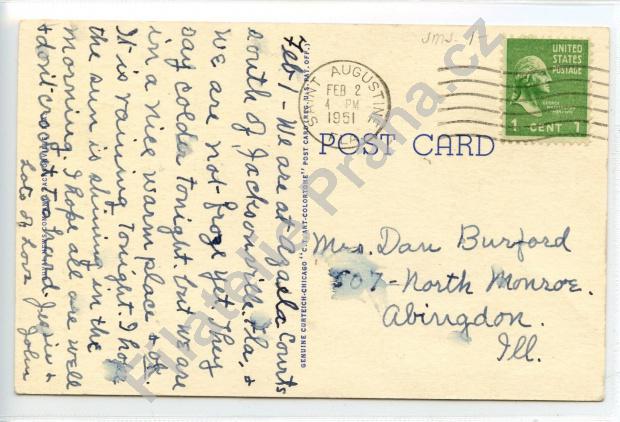 Feb 1 - We are at Azaela Courts
South of Jacksonville, Fla. &
We are not froze yet. They
say colder tonight. but we are
in a nice warm place & ok.
It is raining tonight. I hope
the sun is shining in the
Morning. I hope all are well
& don't Jessie &
Lots of Love John
GENUINE CURTEICH-CHICAGO "C.T. ART-COLORTONE" POST CARD (REG. U.S. PAT. OFF.)
SAINT AUGUSTINE
FEB 2
4 PM
1951
UNITED
STATES
POSTAGE
1 CENT 1
POST CARD
Mrs. Dan Burford
507 - North Monroe.
Abingdon.
Ill.
Filatelie-Praha.cz